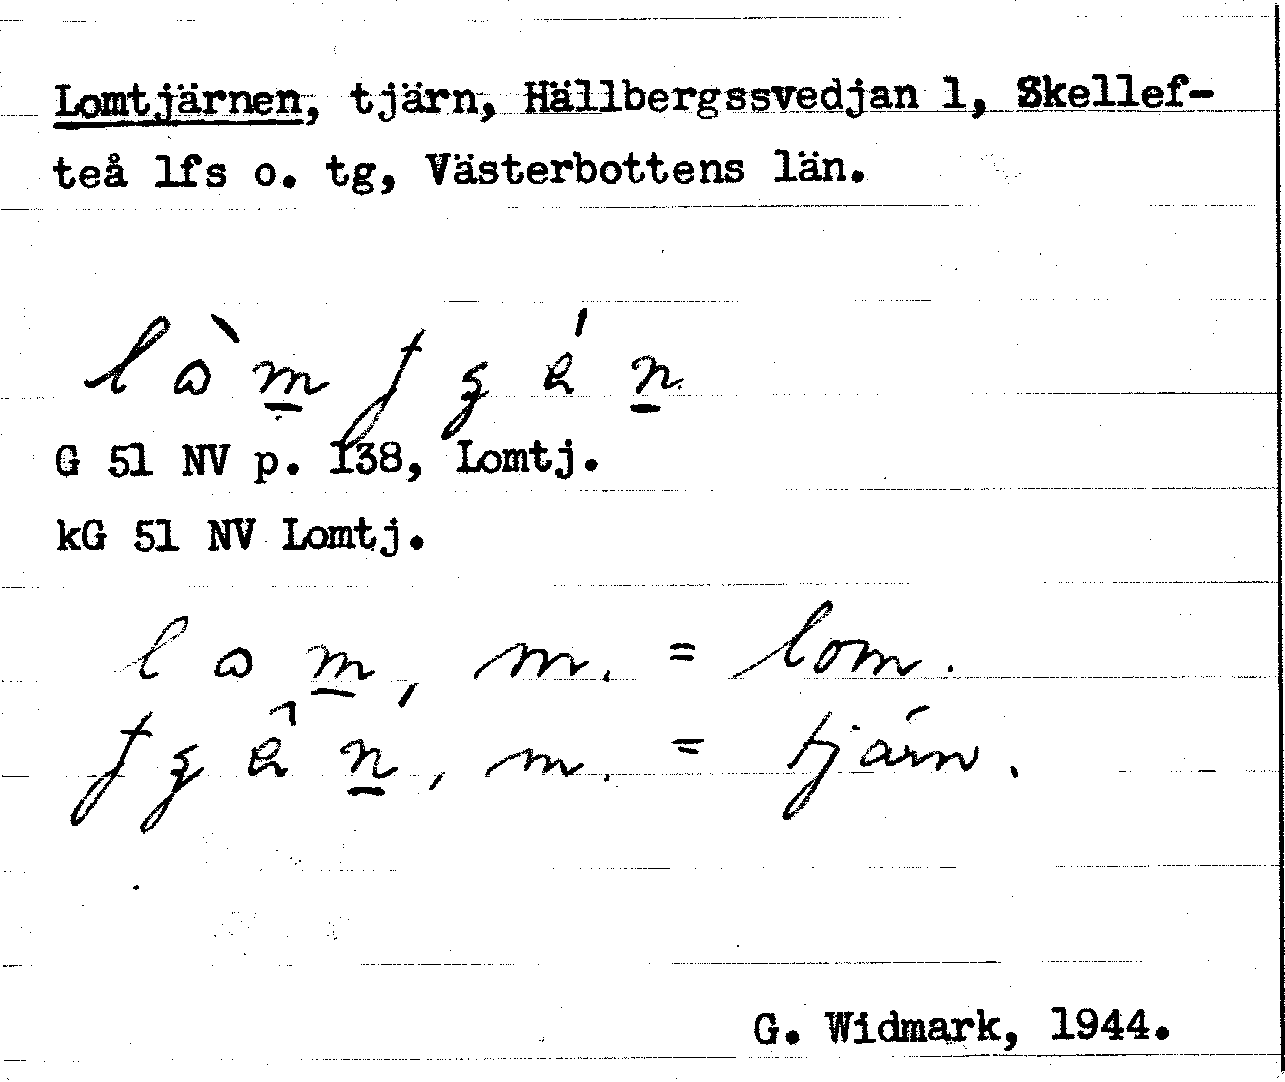 Lomtjärnen, tjärn, Hällbergssvedjan 1, Skellef-
teå lfs o. tg, Västerbottens län.
G 51 NV p. 138, Lomtj.
kG 51 NV Lomtj.
m. = lom.
m. = tjärn.
G. Widmark, 1944.